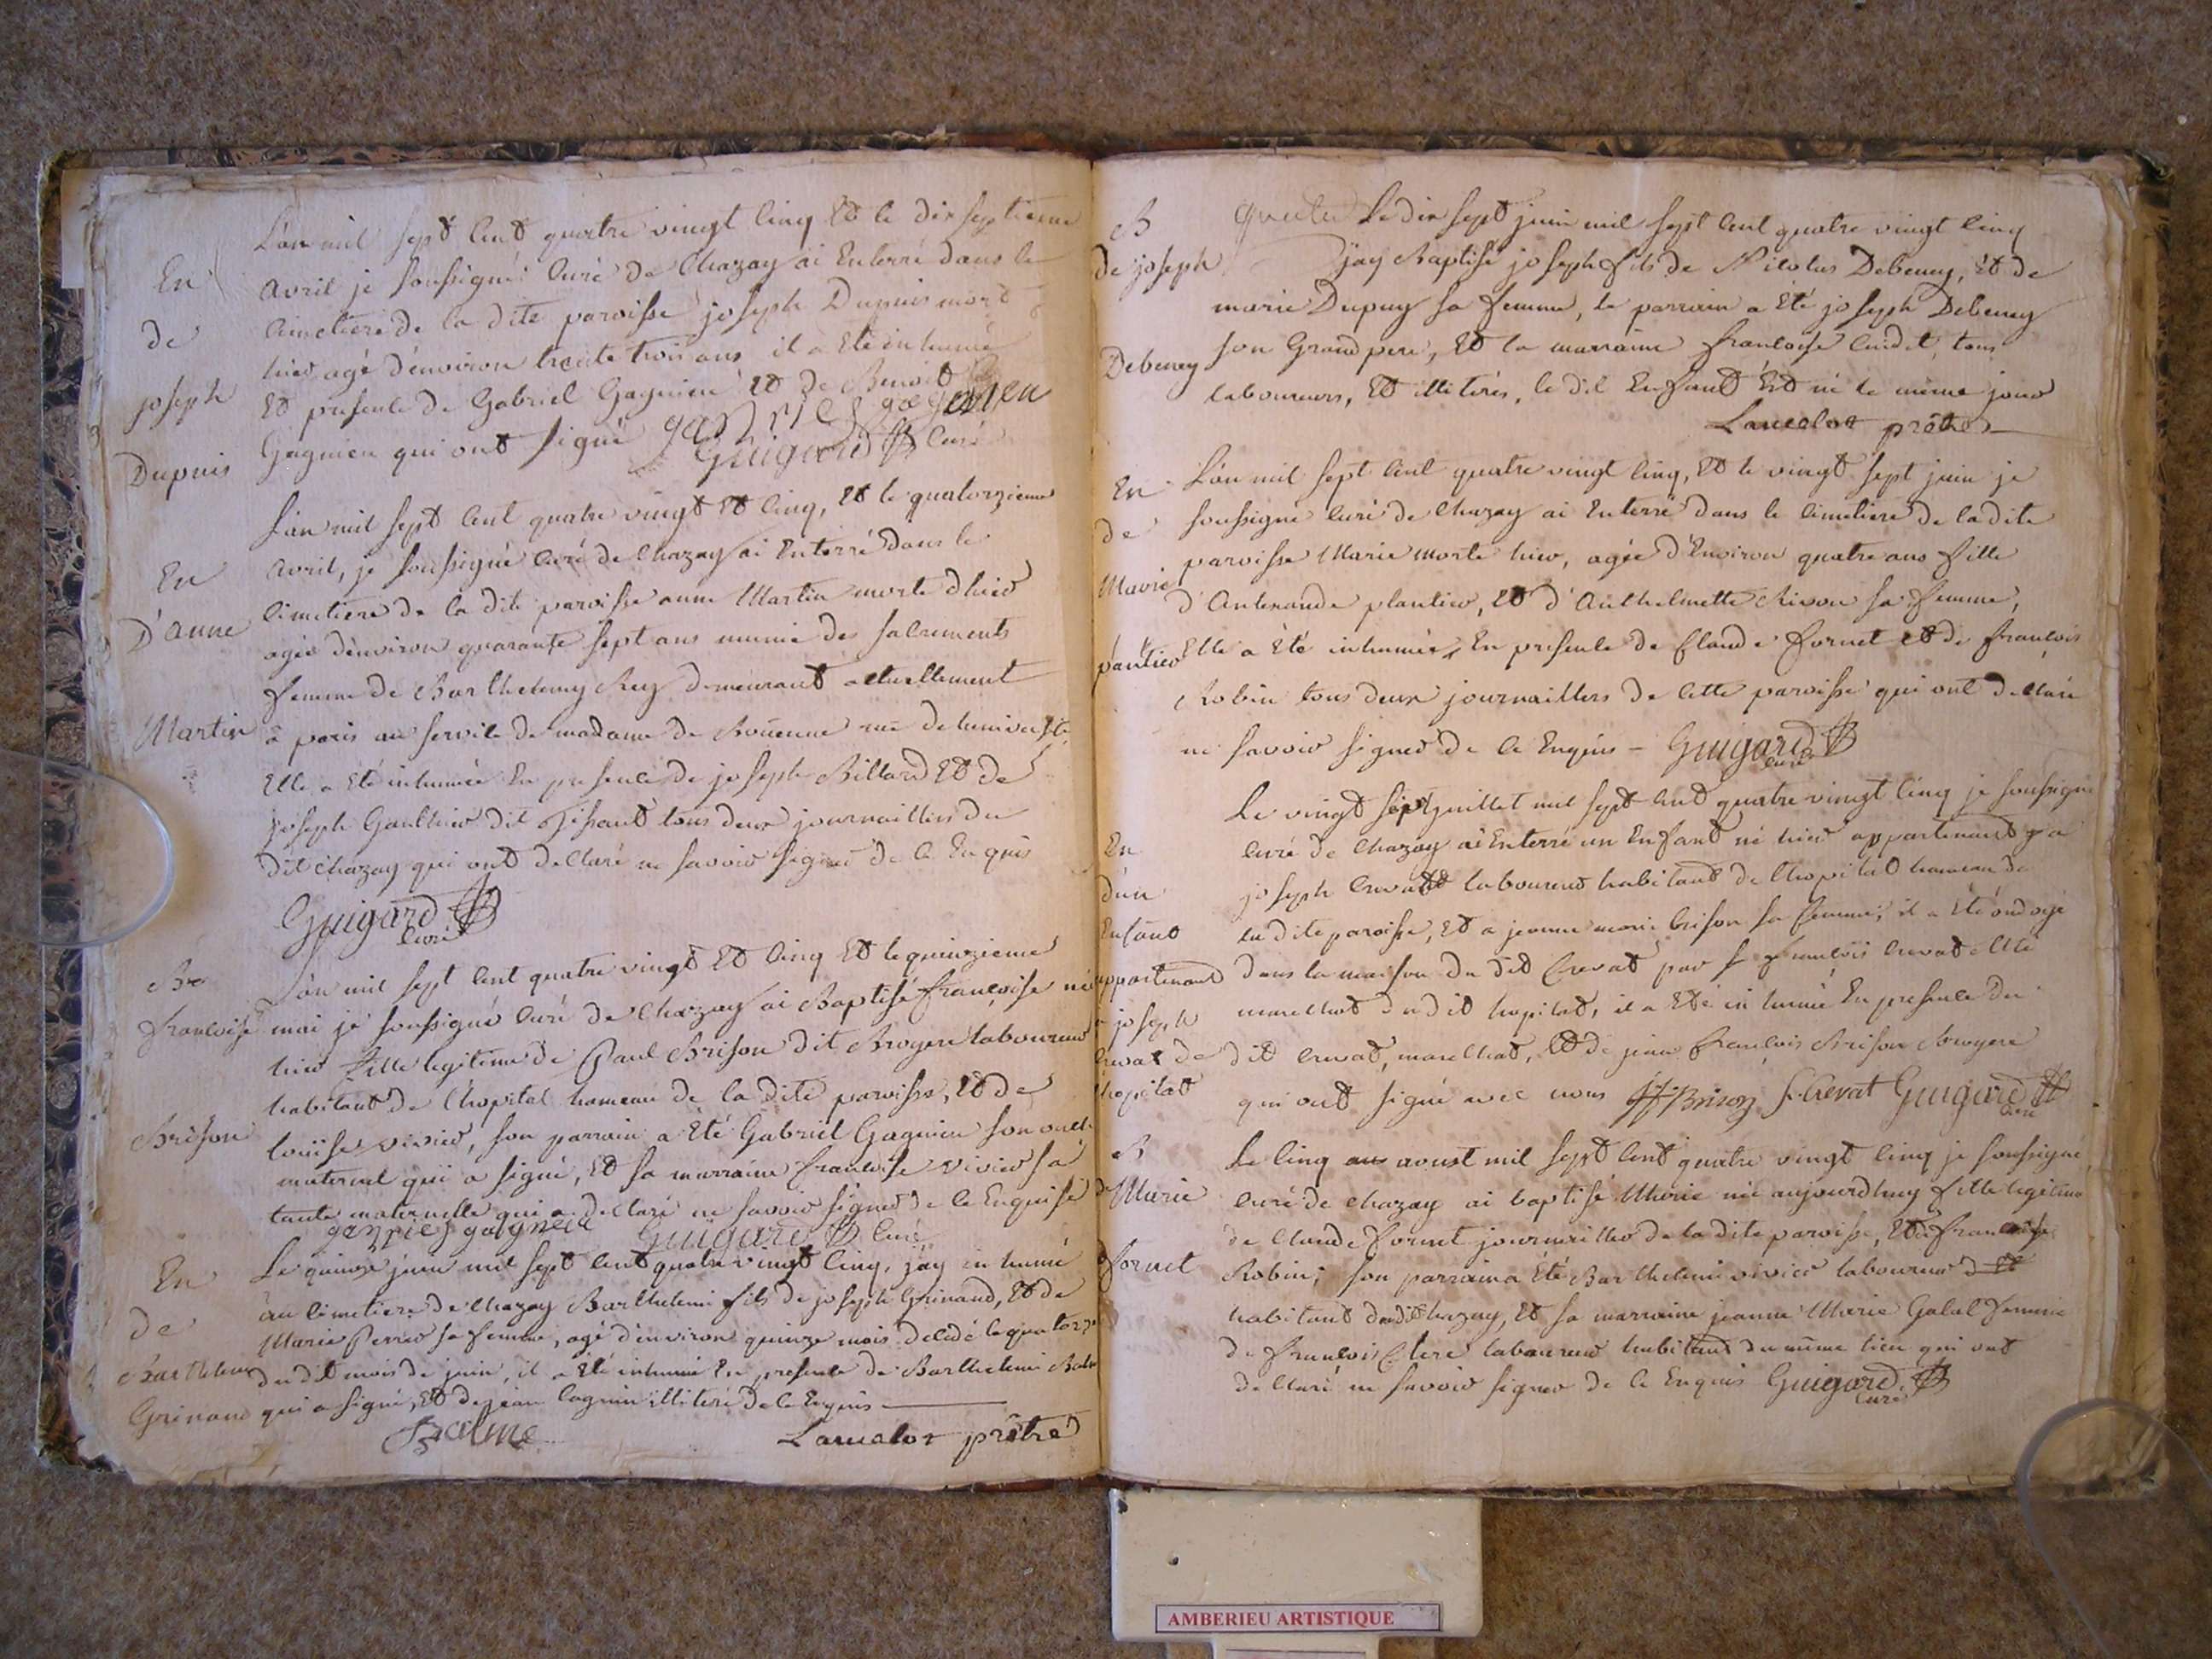 L'an mil sept cent quatre vingt cinq et le dix septieme
En
avril je soussigné curé de Chazay ai enterré dans le
de
cimetiere de la dite paroisse joseph Dupuis mort
hier agé d'environ trente trois ans il a été inhumé
joseph
et presence de Gabriel Gagnieu et de Benoit
Gagnieu qui ont signé gabriel gagnieu
Dupuis
Guigard curé
L'an mil sept cent quatre vingt et cinq, et le quatorzieme
En
avril, je soussigné curé de Chazay ai enterré dans le
D'anne
cimetiere de la dite paroisse anne Martin morte d'hier
agée d'environ quarante sept ans munie des sacrements
femme de Barthelemy Rey demeurant actuellement
Martin
à paris au service de madame de rue de luniversité
Elle a été inhumée en presence de joseph Billard et de
joseph Gaulthier dit Tissaut tous deux journailliers du
dit chazay qui ont declaré ne savoir signer de ce enquis
Guigard
curé
B
L'an mil sept cent quatre vingt et cinq et le quinzieme
francoise
mai je soussigné curé de Chazay ai Baptisé françoise née
hier fille legitime de Paul Brison dit Broyere laboureur
habitant de l'hopital hameau de la dite paroisse, et de
Brison
louise vivier, son parrain a été Gabriel Gagnieu son oncle
maternel qui a signé, et sa marraine francoise vivier sa
tante maternelle qui a declaré ne savoir signer de ce enquise
gabriel gagnieu Guigard curé
En
Le quinze juin mil sept cent quatre vingt cinq, j'ay inhumé
de
au cimetiere de chazay Barthelemi fils de joseph Grinand, et de
Marie Perrier sa femme, agé d'environ quinze mois decedé le quatorze
Barthelemi
du dit mois de juin, il a été inhumé en presence de Barthelemi
Grinand
qui a signé, et de jean cagnin illiteré de ce enquis
Balme Lancelot prêtre
B
Le dix sept juin mil sept cent quatre vingt cinq
de joseph
j'ay Baptisé joseph fils de Nicolas Debeney, et de
marie Dupuy sa femme, le parrain a été joseph Debeney
Debeney
son Grand pere, et la marraine francoise cuidet, tous
laboureurs, et illiterés, le dit enfant est né le meme jour
Lancelot prêtre
En
L'an mil sept cent quatre vingt cinq, et le vingt sept juin je
de
soussigné curé de Chazay ai enterré dans le cimetiere de la dite
Marie
paroisse Marie morte hier, agée d'environ quatre ans fille
d'Antenande plantier, et d'Anthelmette Rivon sa femme,
plantier
Elle a été inhumée, en presence de Claude fornet et de françois
Robin tous deux journailliers de cette paroisse qui ont declaré
ne savoir signer de ce enquis - Guigard
curé
Le vingt sept juillet mil sept cent quatre vingt cinq je soussigné
En
curé de Chazay ai enterré un enfant né hier appartenant à
d'un
joseph Crevat laboureur habitant de l'hopital hameau de
Enfant
la dite paroisse, et a jeanne marie brison sa femme, il a été ondoyé
appartenant
dans la maison du dit Crevat par françois crevat
a joseph
marechat du dit hopital, il a été inhumé en presence du
Crevat de
dit crevat, marechat, et de jean françois Brison Broyere
l'hopital
qui ont signé avec nous jf Brison f. Crevat Guigard
curé
B
Le cinq aoust mil sept cent quatre vingt cinq je soussigné
de Marie
curé de chazay ai baptisé Marie née aujourdhuy fille legitime
de Claude fornet journaillier de la dite paroisse, et de francoise
fornet
Robin, son parrain a été Barthelemi vivier laboureur
habitant dudit chazay, et sa marraine jeanne Marie Galal femme
de françois Clere laboureur habitant du même lieu qui ont
declaré ne savoir signer de ce enquis Guigard
curé
AMBERIEU ARTISTIQUE